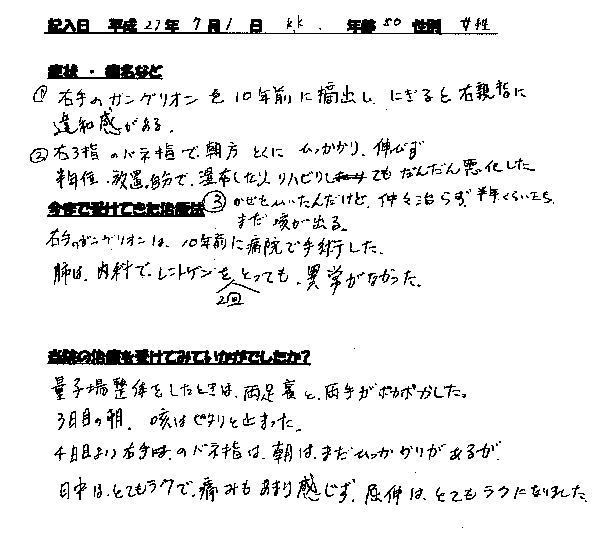 記入日 平成 27年 7月 1日 K.K. 年齢 50 性別 女性
症状・病名など
① 右手のガングリオンを10年前に摘出し、にぎると右親指に
違和感がある。
② 右3指のバネ指で、朝方とくにひっかかり、伸びず
半年位、放置、自分で、湿布したり、リハビリしてもだんだん悪化した
③ かぜをひいたんだけど、仲々治らず、半年くらいたち、
まだ咳が出る。
今まで受けてきた治療法
右手のガングリオンは、10年前に病院で手術した。
肺は、内科で、レントゲンを2回とっても、異常がなかった。
当院の治療を受けてみていかがでしたか?
量子場整体をしたときは、両足裏と、両手がポカポカした。
3日目の朝、咳はピタリと止まった。
4日目より右手のバネ指は、朝は、まだひっかかりがあるが、
日中は、とてもラクで、痛みもあまり感じず、屈伸は、とてもラクになりました